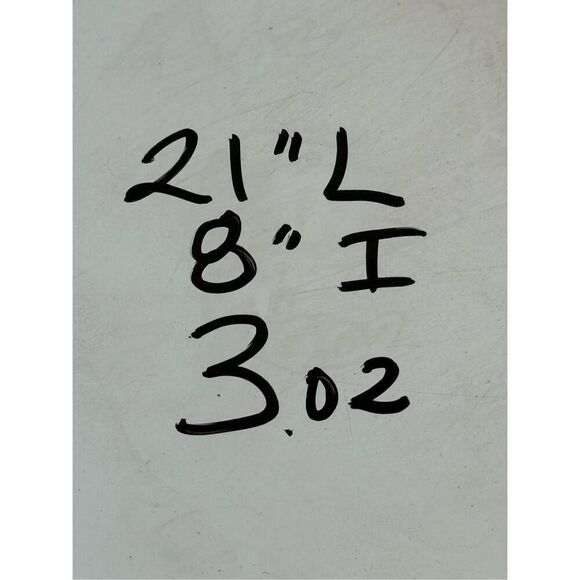 21" L
8" I
3.02